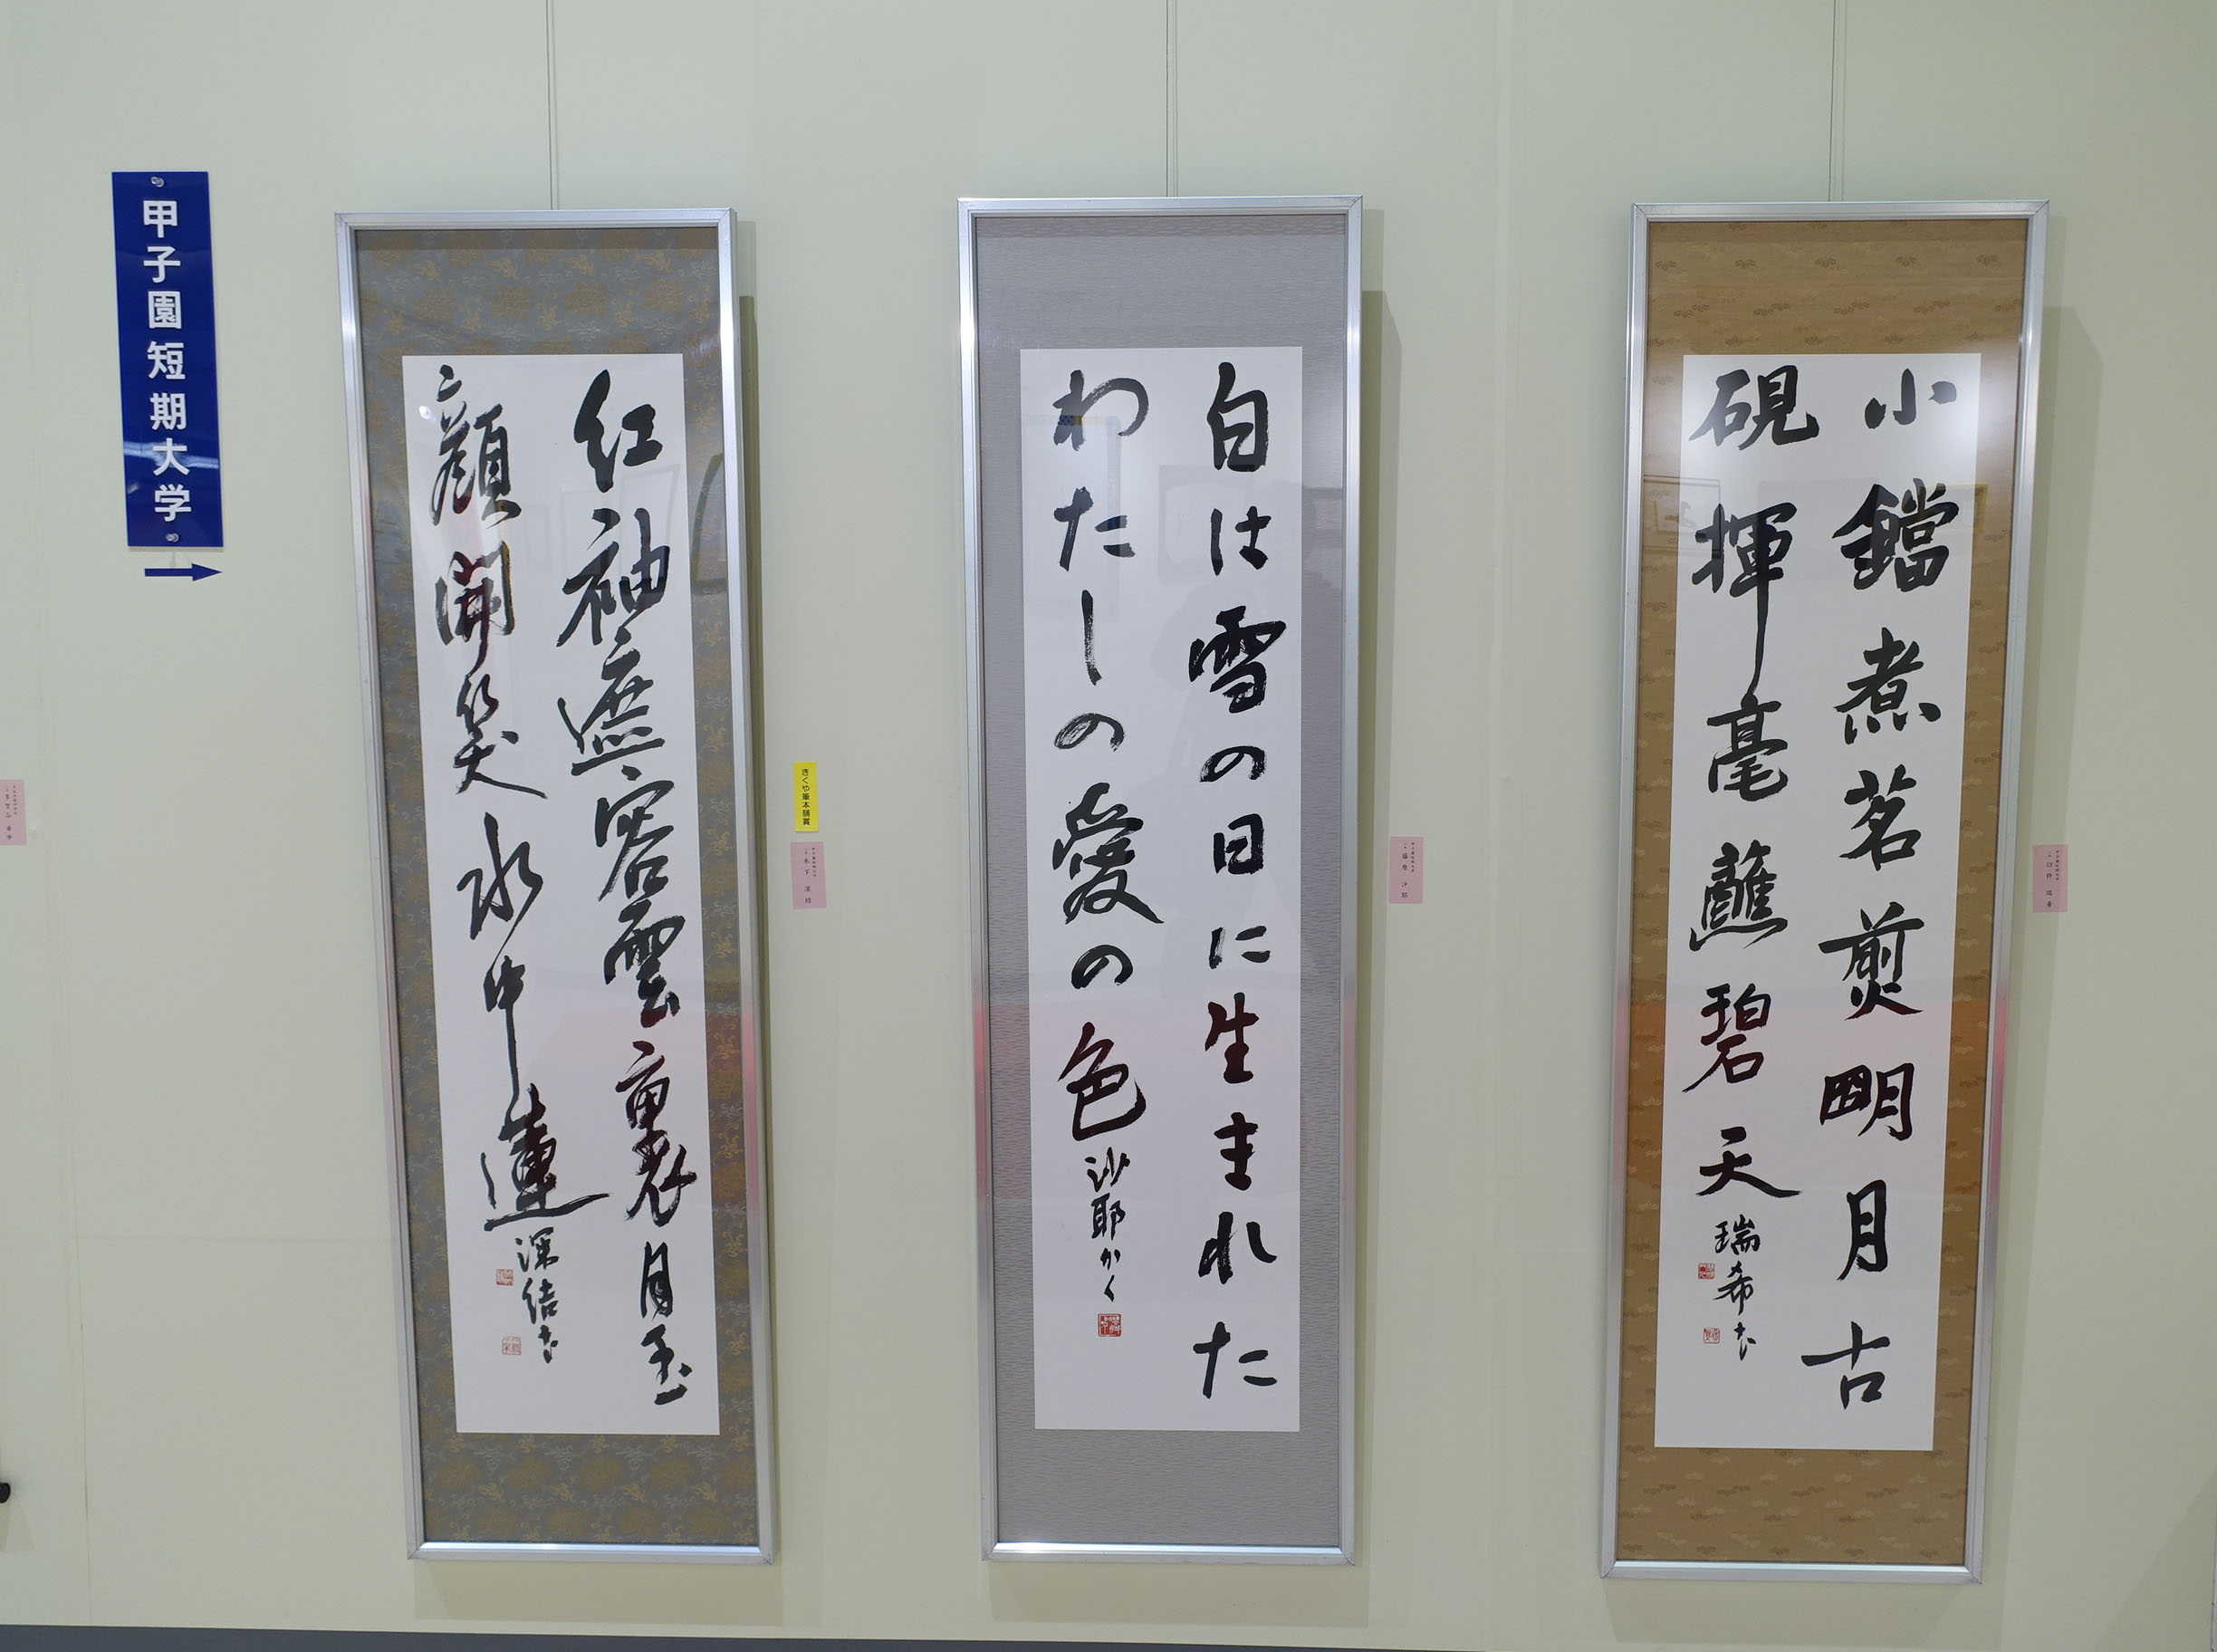 甲子園短期大学
紅袖遮容雲裏月玉
顔開笑水中蓮
深結書
きくや筆本舗賞
木下深結
白は雪の日に生まれた
わたしの愛の色
沙耶かく
藤原沙耶
小鐺煮茗煎明月古
硯揮毫蘸碧天
瑞希書